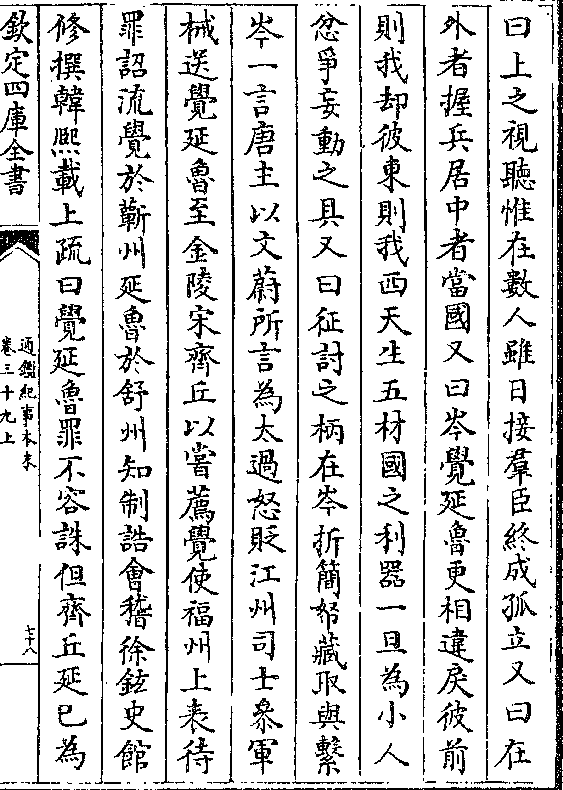 曰上之視聽惟在數人雖日接羣臣終成孤立又曰在
外者握兵居中者當國又曰岑覺延魯更相違戾彼前
則我却彼東則我西天生五材國之利器一旦為小人
忿爭妄動之具又曰征討之柄在岑折簡帑藏取與繫
岑一言唐主以文蔚所言為太過怒貶江州司士叅軍
械送覺延魯至金陵宋齊丘以嘗薦覺使福州上表待
罪詔流覺於蘄州延魯於舒州知制誥會稽徐鉉史館
修撰韓熙載上疏曰覺延魯罪不容誅但齊丘延巳為
欽定四庫全書
通鑑紀事本末
卷三十九上
七十八